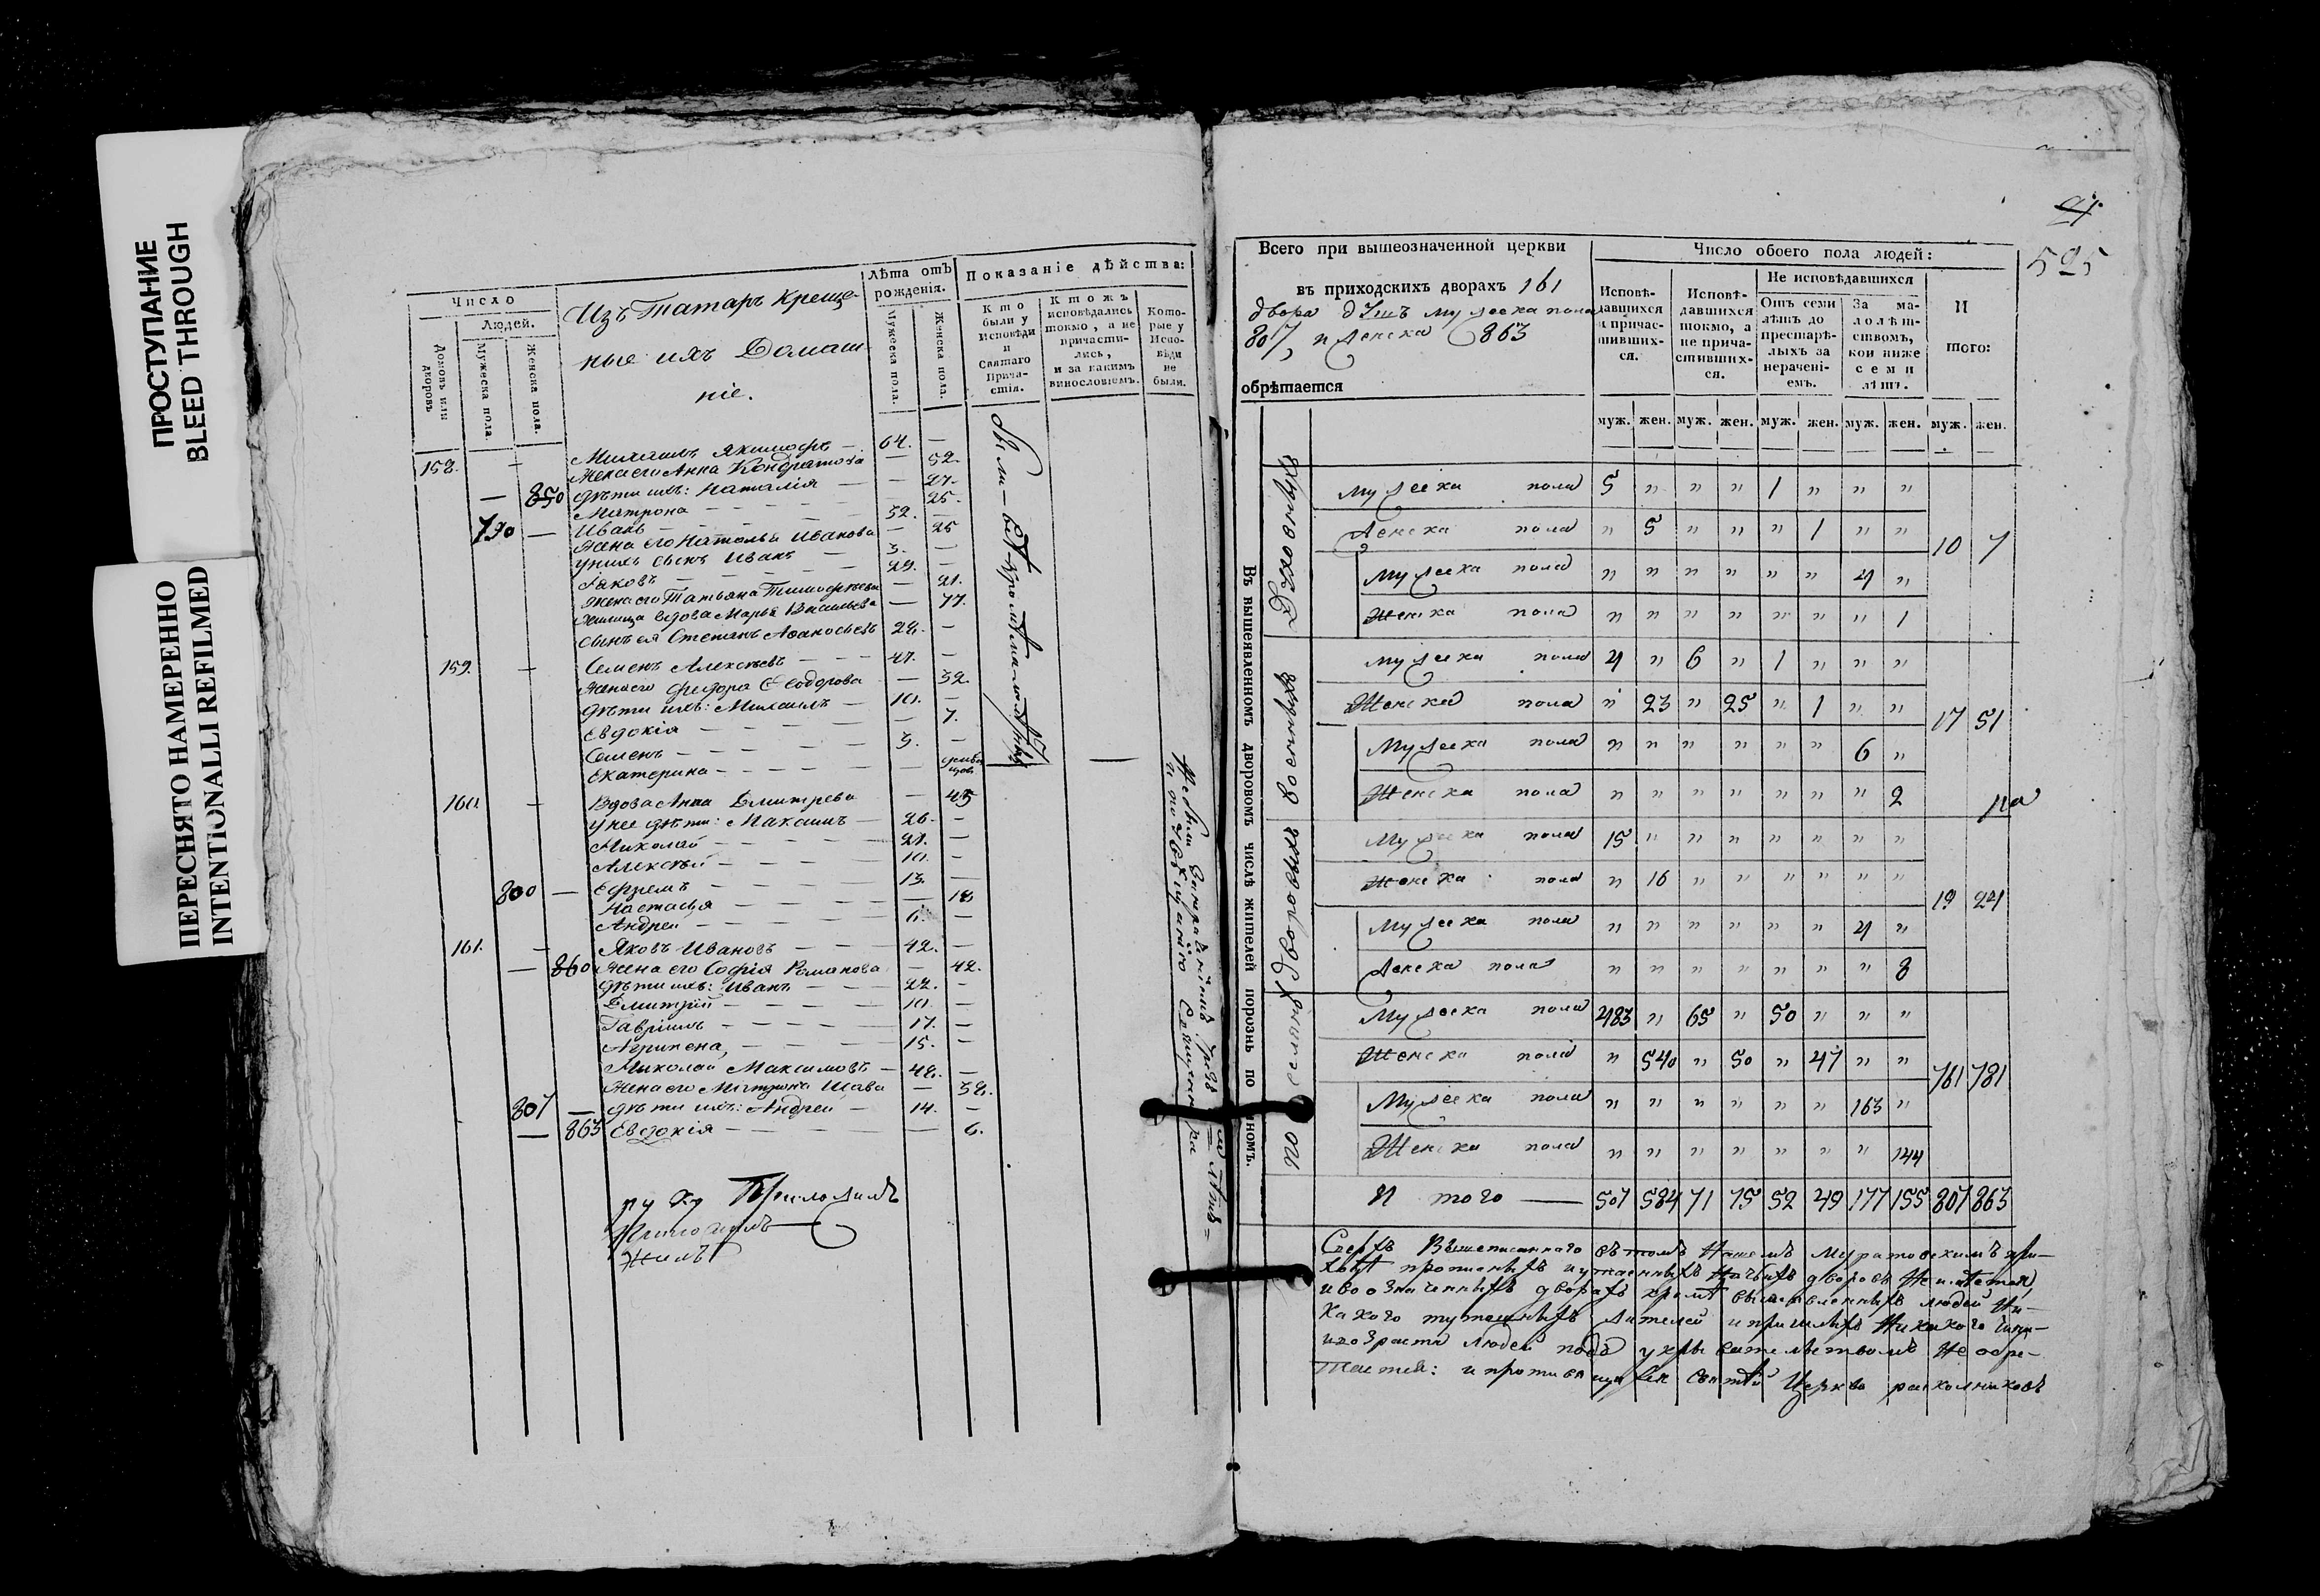 ПРОСТУПАНИЕ
BLEED THROUGH
ПЕРЕСНЯТО НАМЕРЕННО
INTENTIONALLI REFILMED
Число
Людей.
Домовъ или дворовъ
Мужеска пола.
Женска пола.
Изъ Татаръ Креще-
ные ихъ Домаш-
ніе.
Лѣта отъ рожденія.
Мужеска пола.
Женска пола.
Показаніе дѣйства:
Кто были у Исповѣди и Святаго Прича-стія.
Ктожъ исповѣдались токмо, а не причасти-лись, и за какимъ винословіемъ.
Кото-рые у Испо-вѣди не были.
158. — Михаилъ Якимофъ — 64. —
Жена его Анна Кондратова — 52.
— 850 дѣти ихъ: Наталія — — 27.
Матрона — — 25.
790 — Иванъ — 32. —
Жена его Наталья Иванова — 25
у нихъ сынъ Иванъ — 3. —
Яковъ — 22. —
Жена его Татьяна Тимофѣева — 21.
Жилица вдова Марья Васильева — 77.
сынъ ея Степанъ Афанасьевъ 28. —
159. — Семенъ Алексѣевъ — 47. —
Жена его Федора Феодорова — 32.
дѣти ихъ: Михаилъ — 10. —
Евдокія — — 7.
Семенъ — 3. —
Екатерина — —
160. — Вдова Анна Дмитрева — 45
у нее дѣти: Максимъ — 26. —
Николай — 21. —
Алексѣй — 10. —
800 — Ефремъ — 13. —
Настасья — — 18
Андрей — 6. —
161. — Яковъ Ивановъ — 42. —
— 860 Жена его Софія Романова — 42.
дѣти ихъ: Иванъ — 22. —
Дмитрій — 10. —
Гавріилъ — 17. —
Агрипена, — 15. —
Николай Максимовъ — 48. —
Жена его Матрона — 38.
807 — дѣти ихъ: Андрей — 14. —
— 863 Евдокія — — 6.
Приложилъ
жилъ
525
Всего при вышеозначенной церкви
въ приходскихъ дворахъ 161
двора душъ мужеска пола
807, женска 863
обрѣтается
Число обоего пола людей:
Исповѣ-давшихся и причас-тивших-ся.
Исповѣ-давшихся токмо, а не прича-стивших-ся.
Не исповѣдавшихся
Отъ семи лѣтъ до престарѣ-лыхъ за нерачені-емъ.
За ма-лолѣт-ствомъ, кои ниже семи лѣтъ.
И
того:
муж. жен. муж. жен. муж. жен. муж. жен. муж. жен.
Въ вышеявленномъ дворовомъ числѣ жителей порознь по
Духовныхъ
Мужеска пола 5 " " " 1 " " "
Женска пола " 5 " " " 1 " " 10 7
Мужеска пола " " " " " " 4 "
Женска пола " " " " " " " 1
военныхъ
Мужеска пола 4 " 6 " 1 " " "
Женска пола " 23 " 25 " 1 " " 17 51
Мужеска пола " " " " " " 6 "
Женска пола " " " " " " " 2
дворовыхъ
Мужеска пола 15 " " " " " " "
Женска пола " 16 " " " " " " 19 24
Мужеска пола " " " " " " 4 "
Женска пола " " " " " " " 8
поселянъ
Мужеска пола 483 " 65 " 50 " " "
Женска пола " 540 " 50 " 47 " " 761 781
Мужеска пола " " " " " " 163 "
Женска пола " " " " " " " 144
И того — 507 584 71 75 52 49 177 155 807 863
Сверхъ Вышеписаннаго въ томъ Нашемъ Муратовскомъ при-
ходѣ прописныхъ и утаенныхъ дворовъ Не имѣется,
и во означенныхъ дворахъ кромѣ выявленныхъ людей Ни-
какого тутошныхъ жителей и пришлыхъ Никакого чина
и возраста людей подъ укрывательствомъ Не обрѣ-
тается: и противящихся святѣй Церкви раскольниковъ